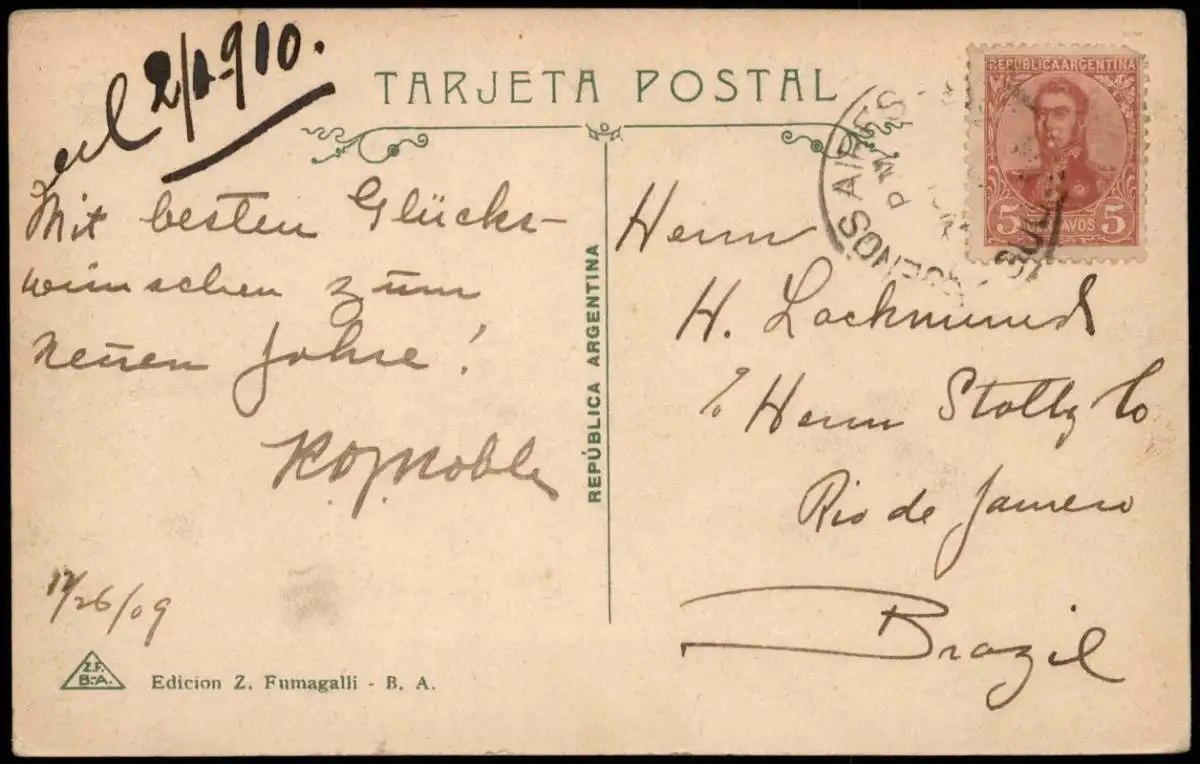 2/1-910.
TARJETA POSTAL
Mit besten Glücks-
wünschen zum
neuen Jahre!
12/26/09
Edicion Z. Fumagalli - B. A.
Z.F.
B.-A.
REPÚBLICA ARGENTINA
REPUBLICA ARGENTINA
5 CENTAVOS 5
BUENOS AIRES
PM
Herrn
H. Lackmund
Herrn Stoltz Co
Rio de Janeiro
Brazil